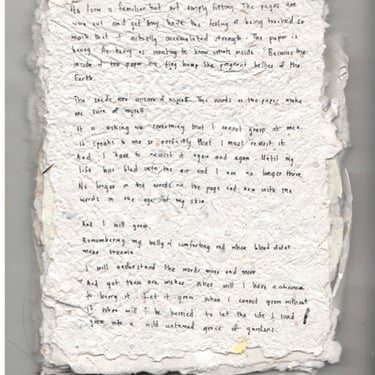 Its form is familiar but not simply fitting. The pages are
worn out and yet they have the feeling of being touched so
much that it actually accumulated strength. The paper is
heavy. As heavy as wanting to know whats inside. Because the
inside of the paper has tiny bump like pregnant bellies of the
Earth.
The seeds are unsure of myself. The words on the paper make
me sure of myself.
It is asking me something that I cannot grasp at once.
It speaks to me so perfectly that I must revisit it.
And I have to revisit it again and again. Until my
life has bled into the air and I am no longer there.
No longer in the words on the page and now with the
words in the age of my skin.
And I will grow.
Remembering my belly of comforting red when blood didnt
mean trauma.
I will understand the words more and more.
And yet there are wishes. When will I have a chance
to bury it. Let it grow. When I cannot grow without
it when will I be buried to let the life I lived
grow into a wild untamed grave of gardens.